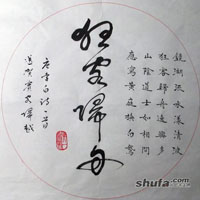 鏡湖流水漾清波
狂客歸舟逸興多
山陰道士如相見
應寫黃庭換白鵝
狂客歸舟
唐李白詩一首
送賀賓客歸越
shufa.com